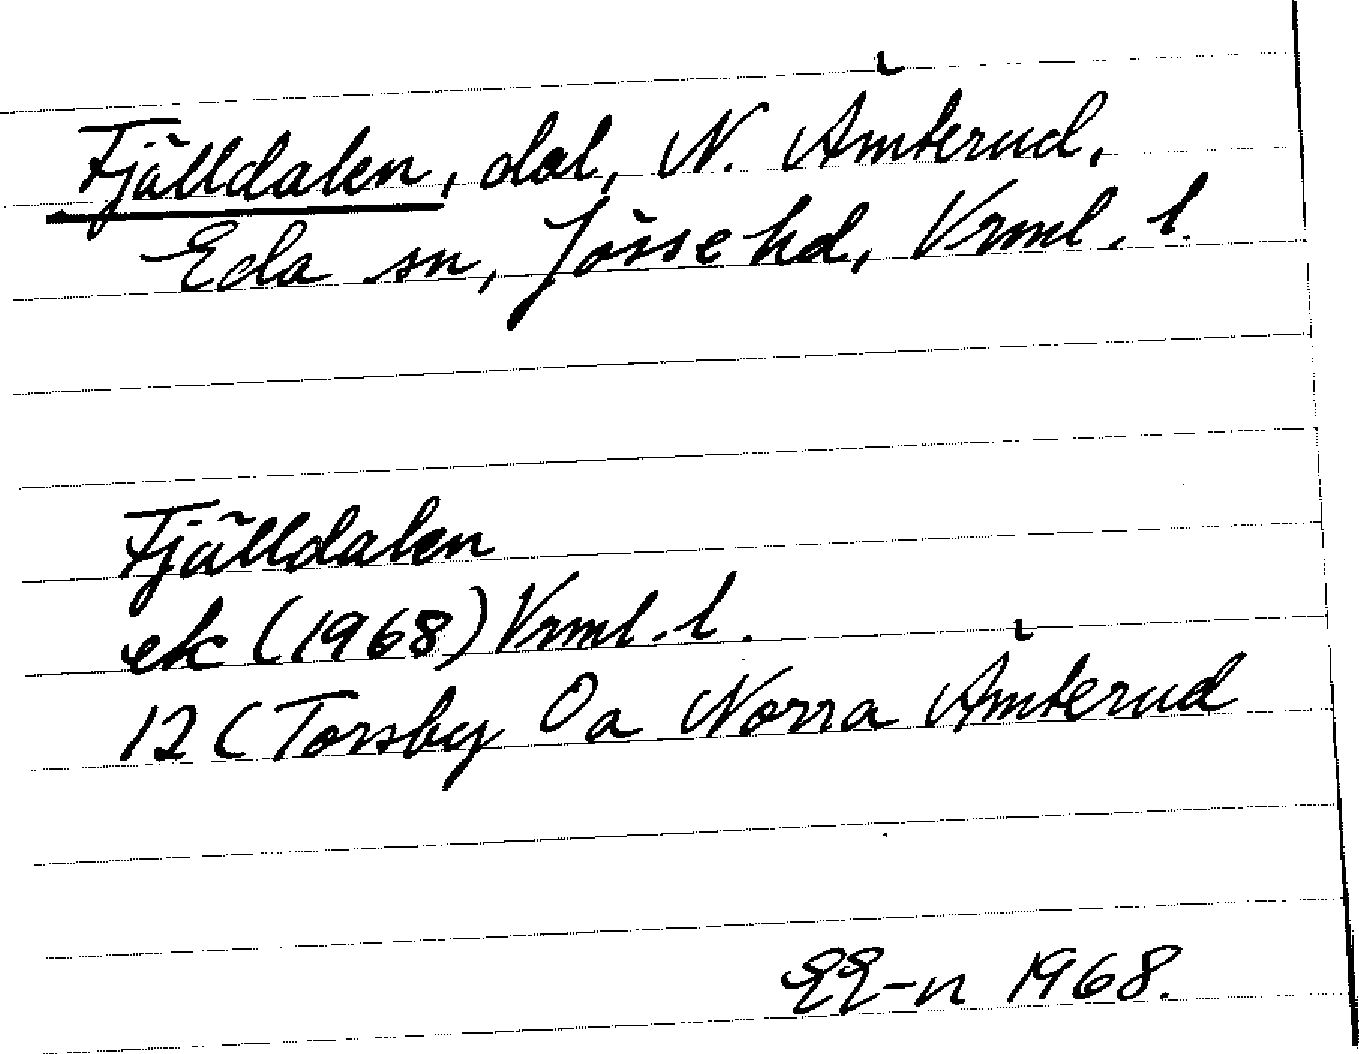 Fjälldalen, dal, N. Åmterud,
Eda sn, Jösse hd, Vrml. l.
Fjälldalen
ek (1968) Vrml. l.
12 C Torsby Oa Norra Åmterud
EE-n 1968.